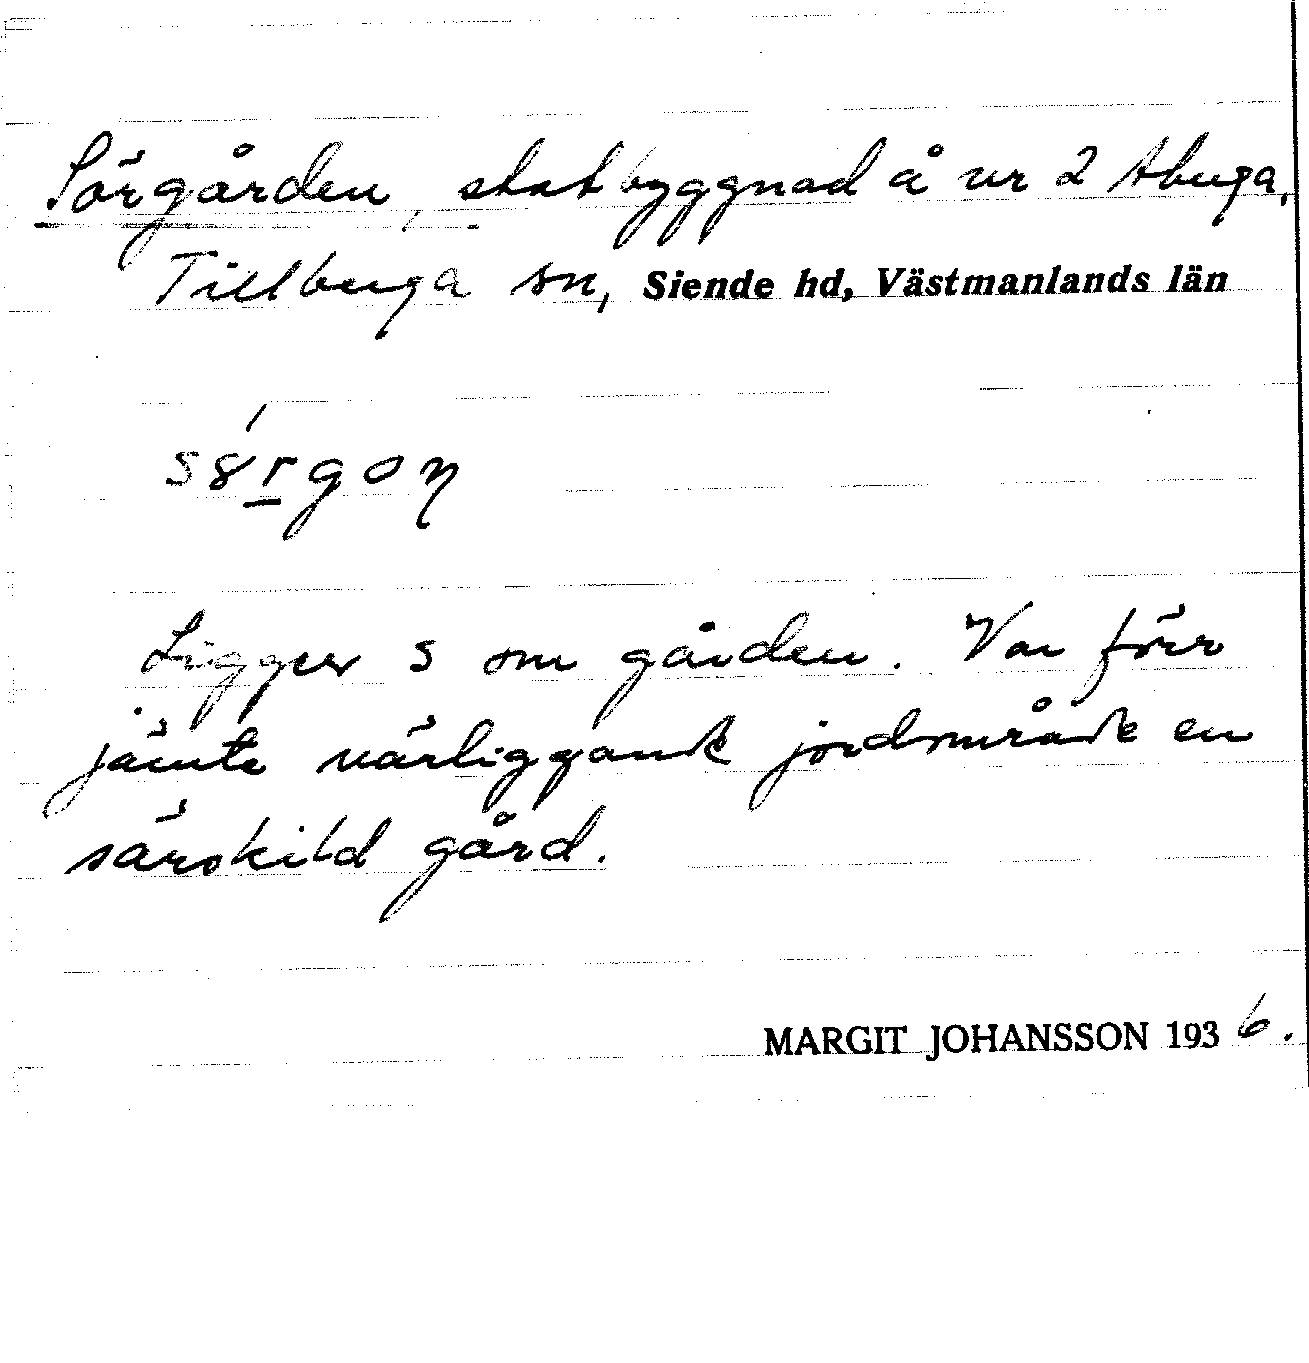 Sörgården, statbyggnad å nr 2 Abuga,
Tillbuga sn, Siende hd, Västmanlands län
s8́rgoɳ
Ligger S om gården. Var förr
jämte närliggande jordområde en
särskild gård.
MARGIT JOHANSSON 1936.